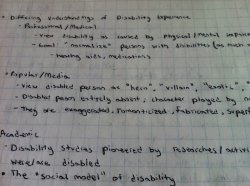 • Differing Understandings of Disability Experience
- Professional/Medical
- View disability as caused by physical/mental
- Goal: "normalize" persons with disabilities (as much
hearing aids, medications
• Popular/Media
- View disabled person as "hero", "villain", "exotic",
- Disabled person entirely absent, character played by
- They are exaggerated, romanticized, fabricated,
Academic
- Disability Studies pioneered by researchers/
were/are disabled
• The "social model" of disability